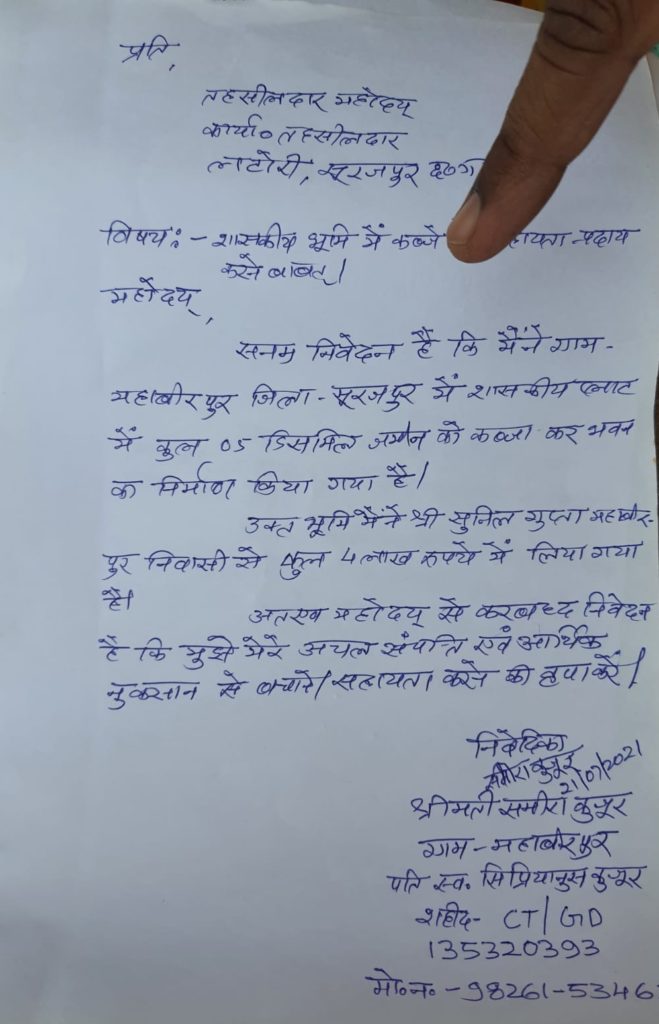 प्रति,
तहसीलदार महोदय्
कार्या० तहसीलदार
लटोरी, सूरजपुर छ०ग
विषय:- शासकीय भूमि में कब्जे हायता प्रदाय
करने बाबत्।
महोदय्,
सनम्र निवेदन है कि मैंने ग्राम-
महाबीरपुर जिला-सूरजपुर में शासकीय प्लाट
में कुल 05 डिसमिल जमीन को कब्जा कर भवन
का निर्माण किया गया है।
उक्त भूमि मैंने श्री सुनिल गुप्ता महाबीर-
पुर निवासी से कुल 4 लाख रूपये में लिया गया
है।
अतएव महोदय् से करबध्द निवेदन
है कि मुझे मेरे अचल संपत्ति एवं आर्थिक
नुकसान से बचाने/सहायता करने की कृपा करें।
निवेदिका
समीरा कुजूर
21/07/2021
श्रीमती समीरा कुजूर
ग्राम-महाबीरपुर
पति स्व. सिप्रियानुस कुजूर
शहीद- CT/GD
135320393
मो०न० -98261-5346